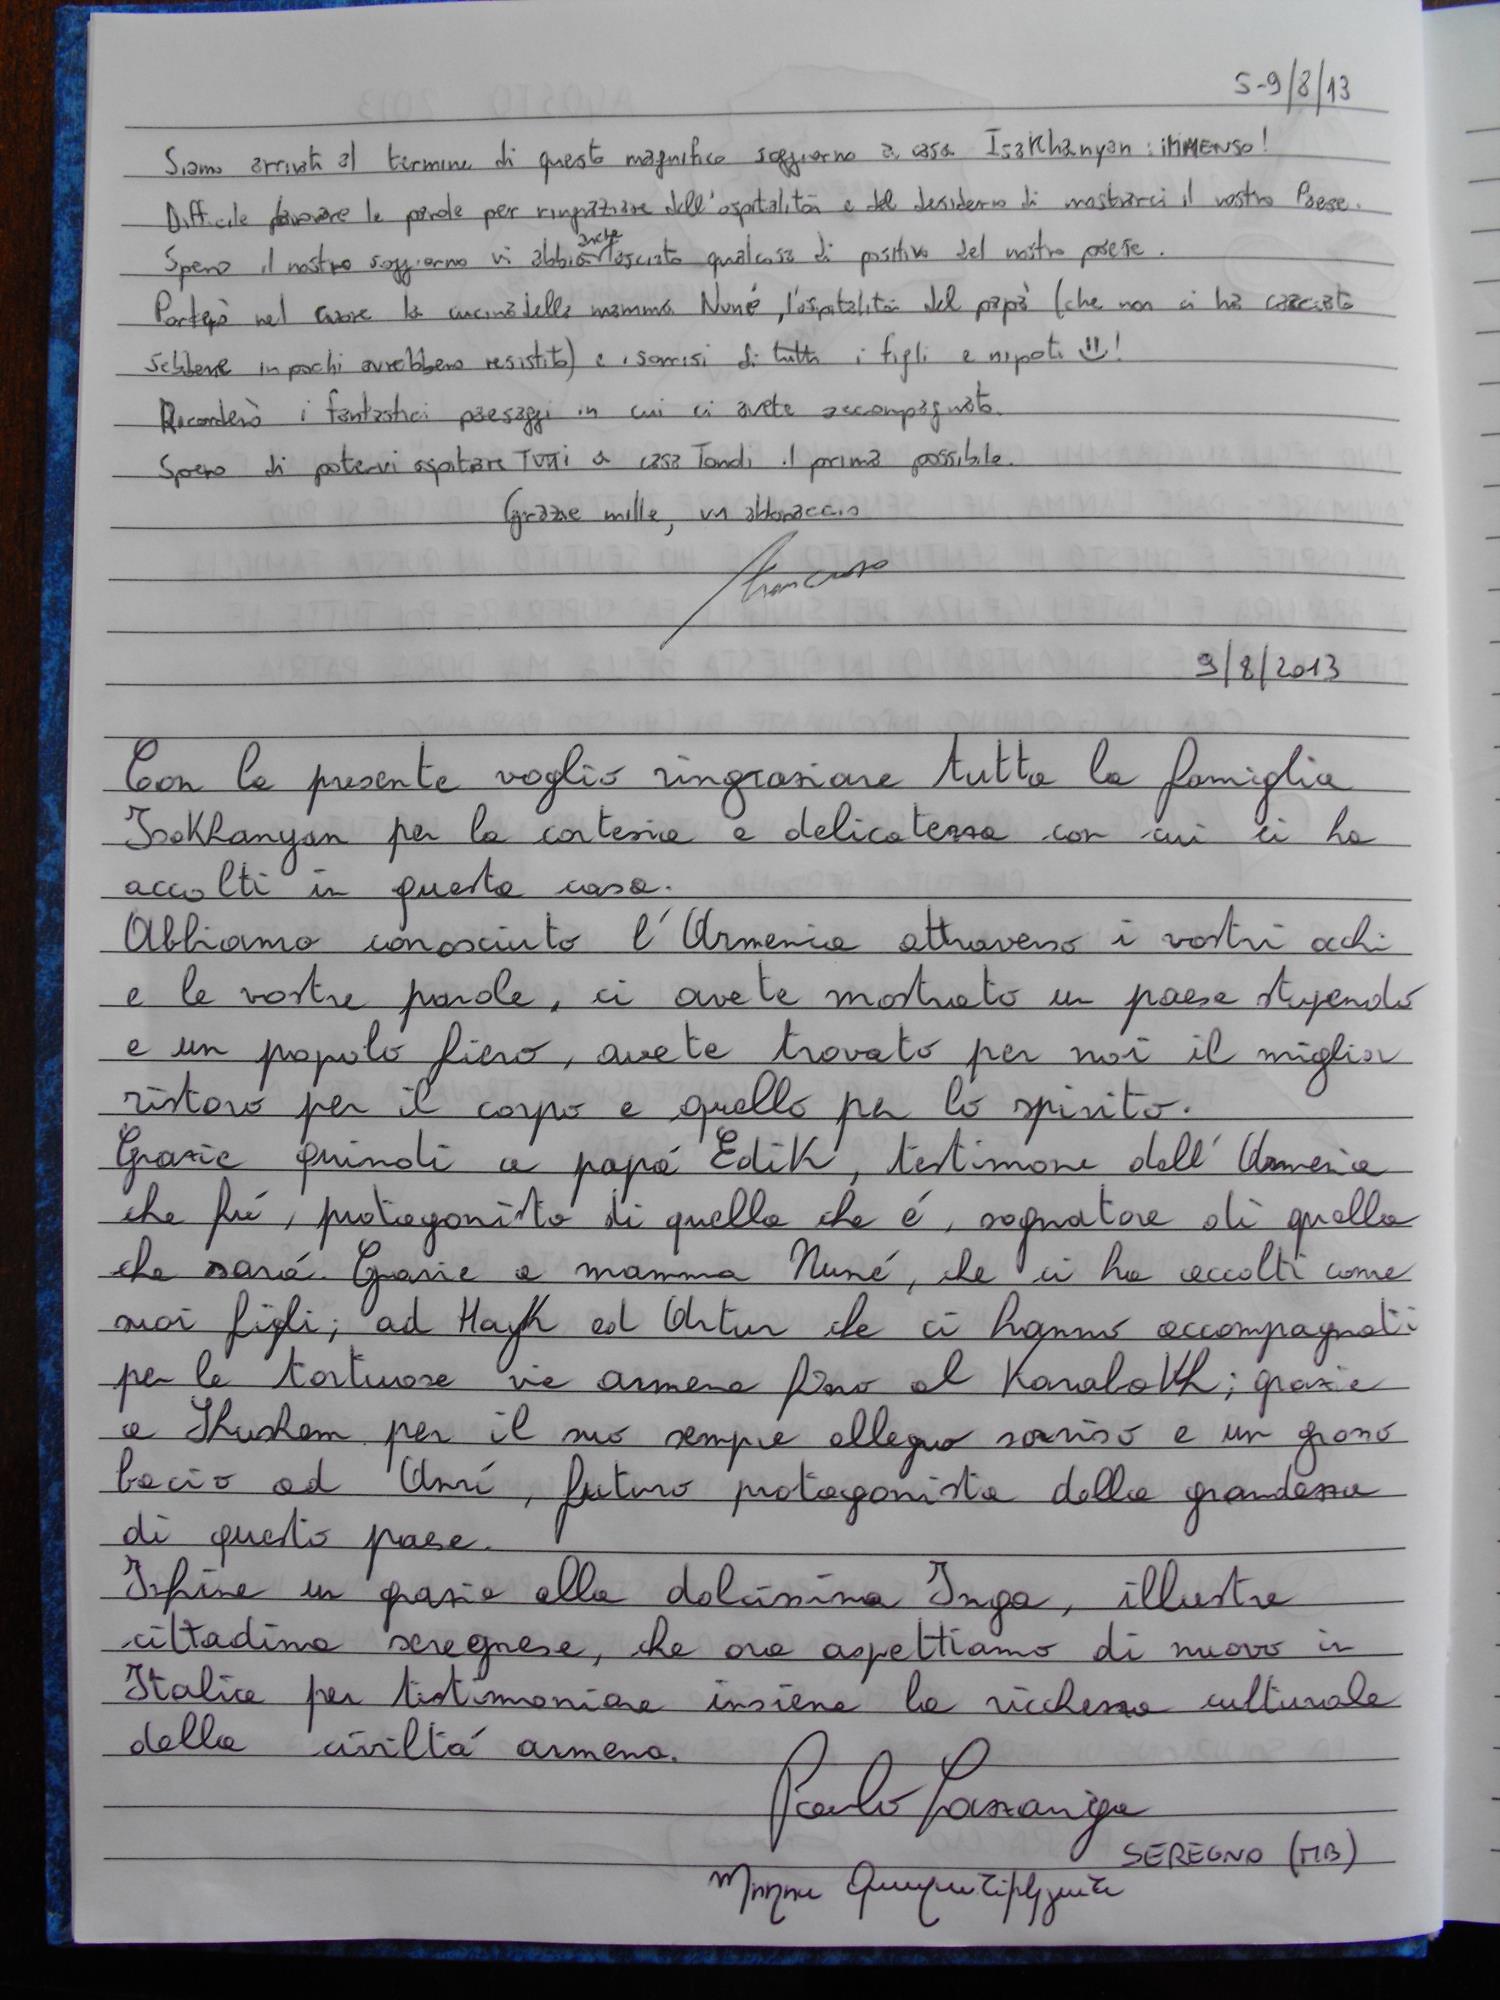 5-9/8/13
Siamo arrivati al termine di questo magnifico soggiorno a casa Isakhanyan: iMMENSO!
Difficile trovare le parole per ringraziare dell'ospitalità e del desiderio di mostrarci il vostro Paese.
Spero il nostro soggiorno vi abbia anche lasciato qualcosa di positivo del nostro paese.
Porterò nel cuore la cucina della mamma Nuné, l'ospitalità del papà (che non ci ha cacciato
sebbene in pochi avrebbero resistito) e i sorrisi di tutti i figli e nipoti !
Ricorderò i fantastici paesaggi in cui ci avete accompagnato.
Spero di potervi ospitare TUTTI a casa Tondi il prima possibile.
Grazie mille, un abbraccio
Francesco
9/8/2013
Con la presente voglio ringraziare tutta la famiglia
Isakhanyan per la cortesia e delicatezza con cui ci ha
accolti in questa casa.
Abbiamo conosciuto l'Armenia attraverso i vostri occhi
e le vostre parole, ci avete mostrato un paese stupendo
e un popolo fiero, avete trovato per noi il miglior
ristoro per il corpo e quello per lo spirito.
Grazie quindi a papá Edik, testimone dell'Armenia
che fú, protagonista di quella che é, sognatore di quella
che sará. Grazie a mamma Nuné, che ci ha accolti come
suoi figli; ad Hayk ed Artur che ci hanno accompagnati
per le tortuose vie armene fino al Karabakh; grazie
a Shushan per il suo sempre allegro sorriso e un grosso
bacio ad Aní, futuro protagonista della grandezza
di questo paese.
Infine un grazie alla dolcissima Inga, illustre
cittadina seregnese, che ora aspettiamo di nuovo in
Italia per testimoniare insieme la ricchezza culturale
della civiltá armena.
Paolo Cazzaniga
SEREGNO (MB)